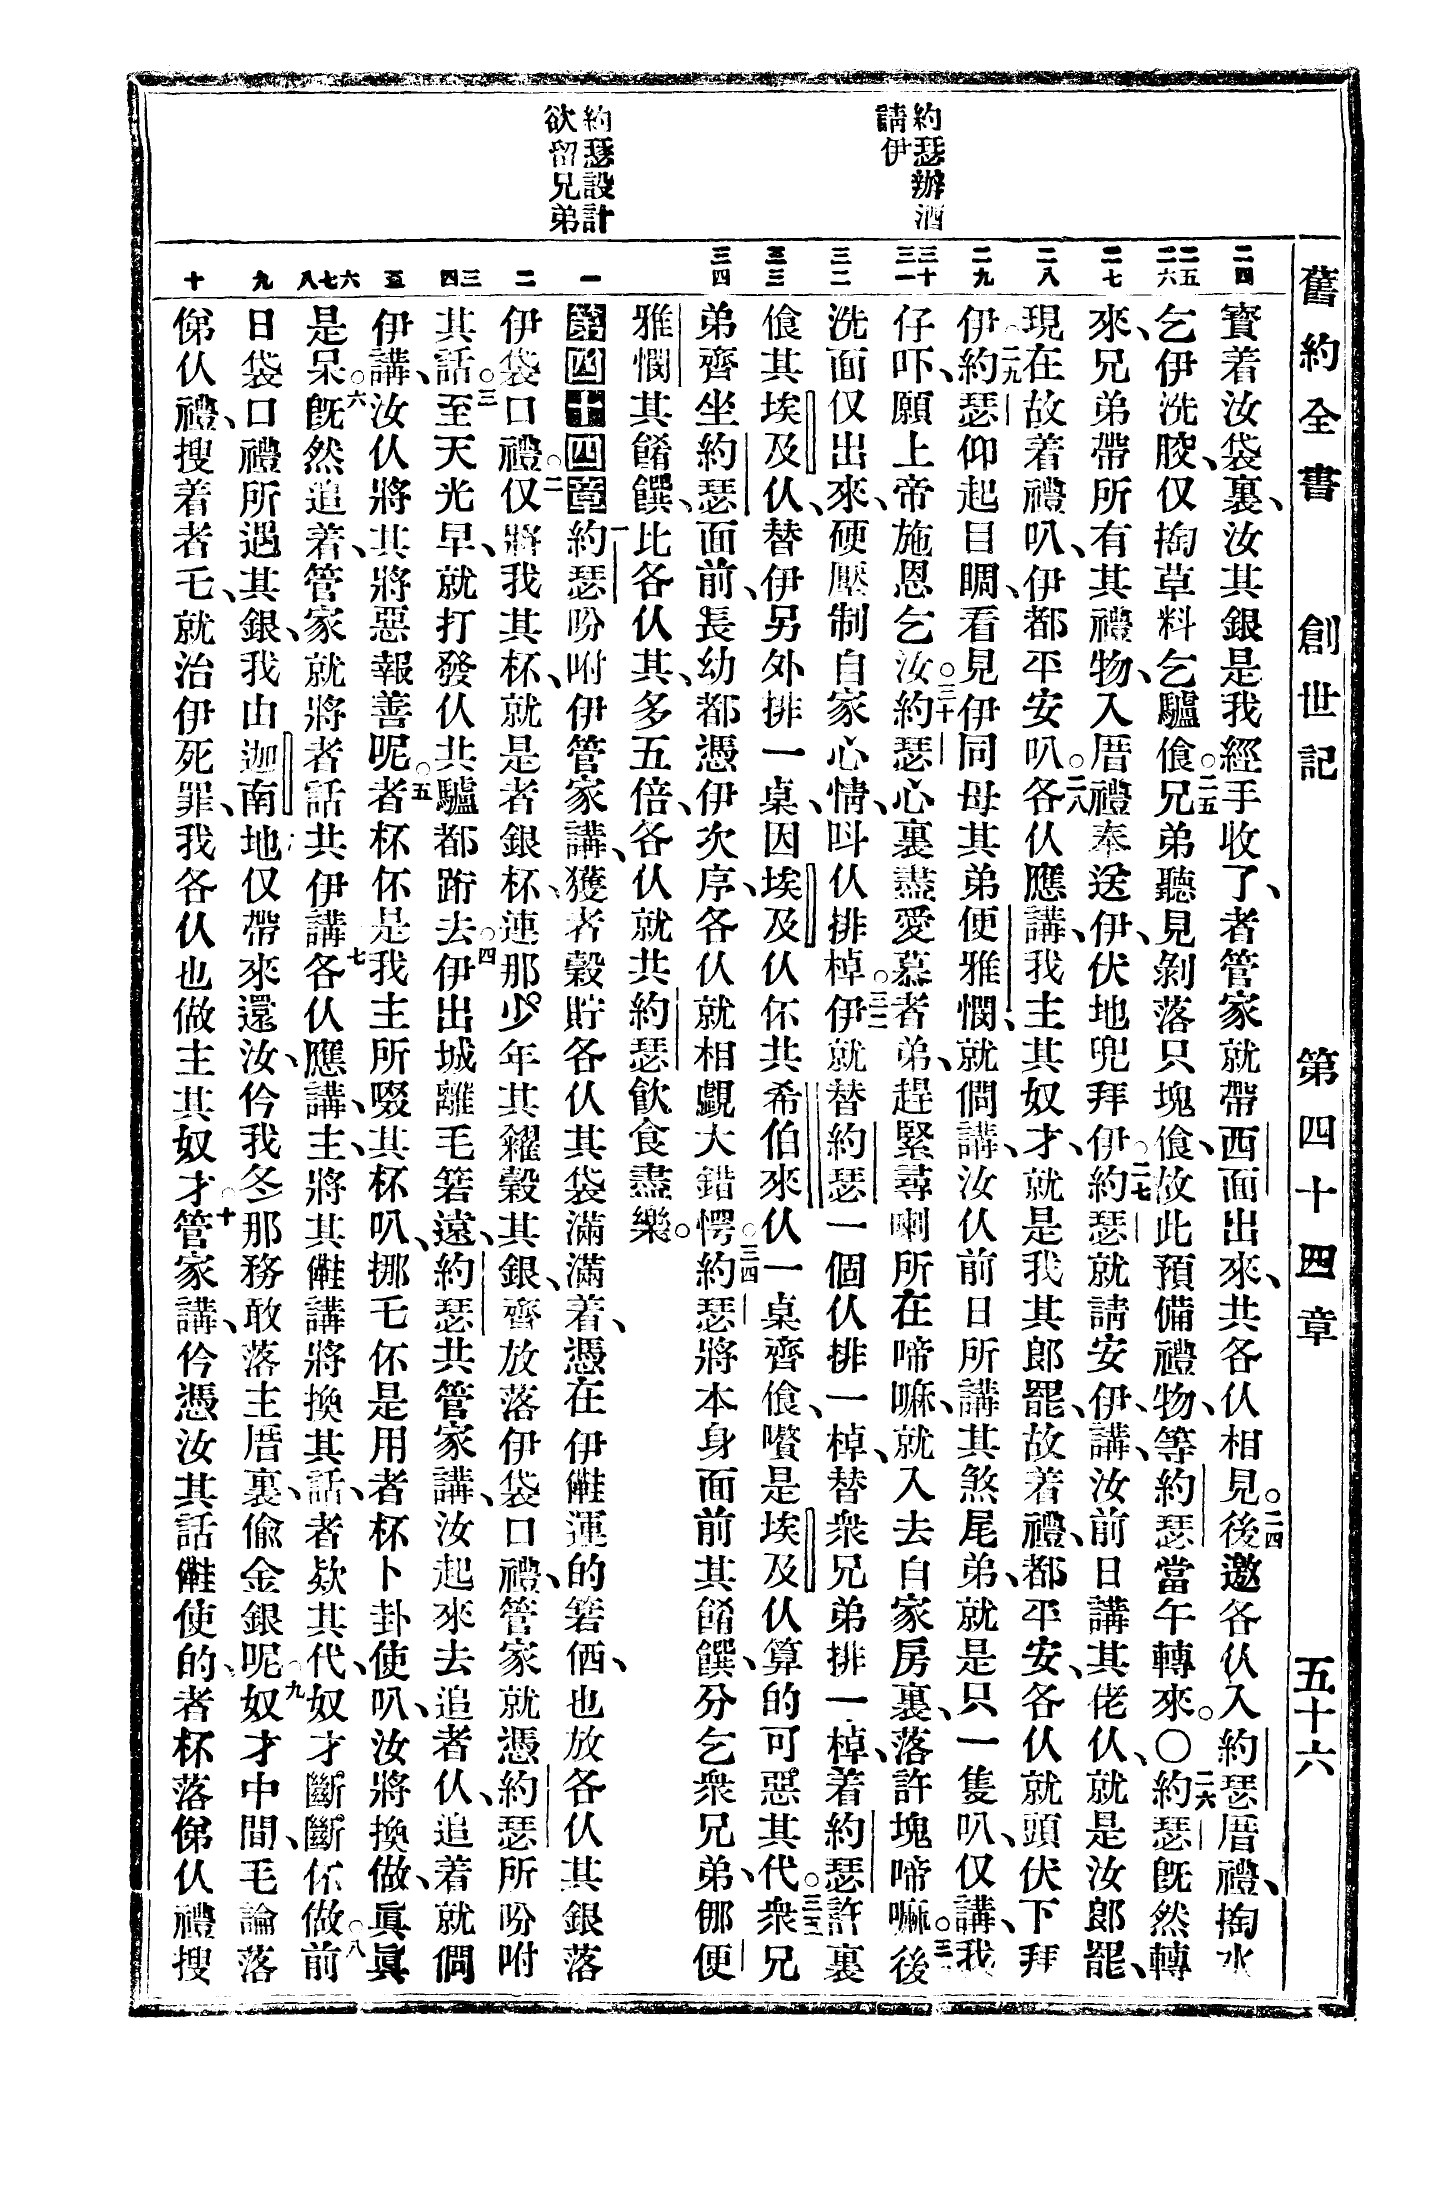 舊約全書　創世記　第四十四章　五十六
約瑟辦酒
請伊
約瑟設計
欲留兄弟
寶着汝袋裏、汝其銀是我經手收了、者管家就帶西面出來、共各仈相見。二四後邀各仈入約瑟厝禮、掏水
乞伊洗䠉、仅掏草料乞驢飡。二五兄弟聽見剝落只塊飡、故此預備禮物、等約瑟當午轉來。〇二六約瑟旣然轉
來、兄弟帶所有其禮物、入厝禮奉送伊、伏地兜拜伊。二七約瑟就請安伊、伊講、汝前日講其佬仈、就是汝郎罷、
現在故着禮叭、伊都平安叭。二八各仈應講、我主其奴才、就是我其郎罷、故着禮、都平安、各仈就頭伏下拜
伊。二九約瑟仰起目睭、看見伊同母其弟便雅憫、就僩講、汝仈前日所講其煞尾弟、就是只一隻叭、仅講、我
仔吓、願上帝施恩乞汝。三十約瑟心裏盡愛慕者弟、趕緊尋喇所在啼嘛、就入去自家房裏、落許塊啼嘛。三一後
洗面仅出來、硬壓制自家心情、呌仈排棹。三二伊就替約瑟一個仈排一棹、替衆兄弟排一棹、着約瑟許裏
飡其埃及仈、替伊另外排一桌、因埃及仈伓共希伯來仈一桌齊飡、嚽是埃及仈算的可惡其代。三三衆兄
弟齊坐約瑟面前、長幼都憑伊次序、各仈就相覷大錯愕。三四約瑟將本身面前其餚饌、分乞衆兄弟、㑚便
雅憫其餚饌、比各仈其、多五倍、各仈就共約瑟飲食盡樂。
第四十四章　一約瑟吩咐伊管家講、獲者穀貯各仈其袋滿滿着、憑在伊㒕運的箬価、也放各仈其銀落
伊袋口禮。二仅將我其杯、就是者銀杯、連那少年其糴穀其銀、齊放落伊袋口禮、管家就憑約瑟所吩咐
其話。三至天光早、就打發仈共驢都跴去。四伊出城離毛箬遠、約瑟共管家講、汝起來去追者仈、追着就僩
伊講、汝仈將其將惡報善呢。五者杯伓是我主所啜其杯叭、挪乇伓是用者杯卜卦使叭、汝將換做、眞眞
是呆。六旣然追着、管家就將者話共伊講。七各仈應講、主、將其㒕講將換其話、者欵其代、奴才斷斷伓做。八前
日袋口禮所遇其銀、我由迦南地仅帶來還汝、仱我冬那務敢落主厝裏、偸金銀呢。九奴才中間、毛論落
㑚仈禮、搜着者乇、就治伊死罪、我各仈也做主其奴才。十管家講、仱憑汝其話㒕使的、者杯落㑚仈禮搜